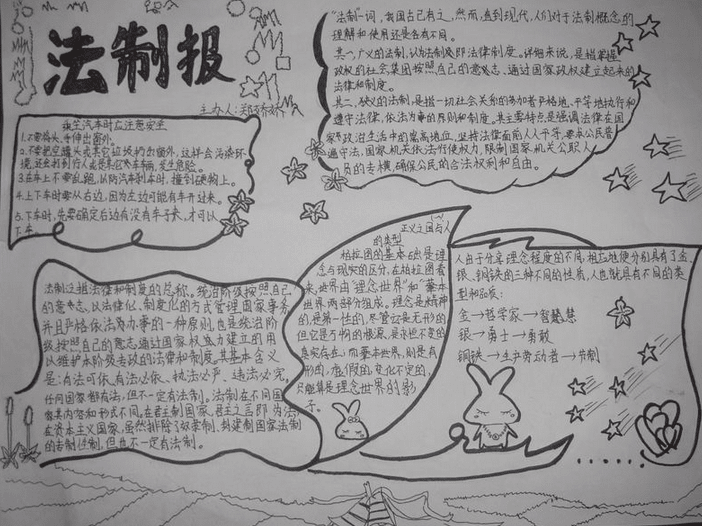 法制报
主办人:郑娇娇
"法制"一词,我国古已有之,然而,直到现代,人们对于法制概念的
理解和使用还是各有不同。
其一、广义的法制,认为法制即法律制度。详细来说,是指掌握
政权的社会集团按照自己的意志,通过国家政权建立起来的
法律和制度。
其二、狭义的法制,是指一切社会关系的参加者严格地、平等地执行和
遵守法律,依法办事的原则和制度。其主要特点是强调法律在国
家政治生活中的崇高地位,坚持法律面前人人平等,要求公民普
遍守法,国家机关依法行使权力,限制国家机关公职人
员的专横,确保公民的合法权利和自由。
乘坐汽车时应注意安全
1.不要将头、手伸出窗外。
2.不要把空罐头或其它垃圾扔出窗外,这样会污染环
境,还会打到行人或是其它来车辆,发生危险。
3.在车上不要乱跑,以防汽车刹车时,撞到硬物上。
4.上下车时要从右边,因为左边可能有车开过来。
5.下车时,先要确定后边有没有车子来,才可以
下车。
法制是指法律和制度的总称。统治阶级按照自己
的意志,以法律化、制度化的方式管理国家事务,
并且严格依法办事的一种原则,也是统治阶
级按照自己的意志通过国家权力建立的用
以维护本阶级专政的法律和制度,其基本含义
是:有法可依、有法必依、执法必严、违法必究,
任何国家都有法,但不一定有法制。法制在不同国
家其内容和形式不同,在君主制国家,君主之言即为法;
在资本主义国家,虽然排除了奴隶制、封建制国家法制
的专制性制,但也不一定有法制。
正义之国与人
的类型
柏拉图的基本信念是理
念与现实的区分,在柏拉图看
来,世界由"理念世界"和"基本
世界"两部分组成。理念是精神
的,是第一性的,尽管它是无形的
但它是万物的根源,是永恒不变的
真实存在;而基本世界,则是有
形的,虚假的,变化不定的,
只能算是理念世界的影
子。
人由于分享理念程度的不同,相应地便分别具有了金、
银、铜铁的三种不同的性质,人也就具有不同的类
型和品质:
金→哲学家→智慧
银→勇士→勇敢
铜铁→生产劳动者→节制